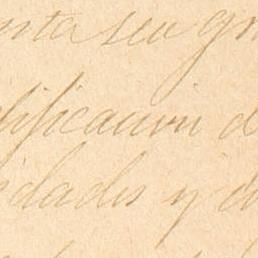 nta seu gr
lificaciom d
idades y d